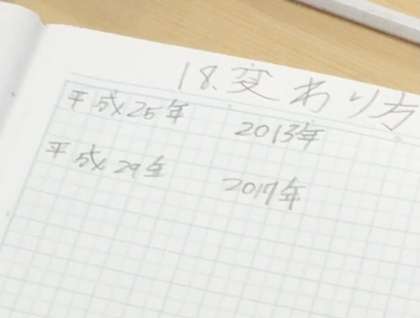 18.変あり方
平成25年 2013年
平成29年 2017年